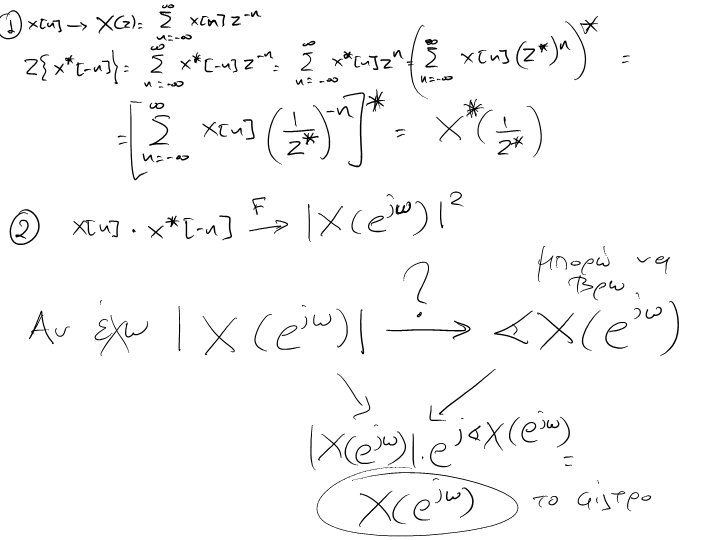 ① x[n] → X(z) = ∑_{n=-∞}^{∞} x[n] z^{-n}
Z{x*[-n]} = ∑_{n=-∞}^{∞} x*[-n] z^{-n} = ∑_{n=-∞}^{∞} x*[n] z^{n} = (∑_{n=-∞}^{∞} x[n] (z*)^{n})^{*} =
= [∑_{n=-∞}^{∞} x[n] (1/z*)^{-n}]^{*} = X*(1/z*)
② x[n] · x*[-n] →^{F} |X(e^{jω})|^2
μπορώ να
βρω
?
Αν έχω |X(e^{jω})| → ∢X(e^{jω})
|X(e^{jω})| · e^{j∢X(e^{jω})} =
X(e^{jω}) το